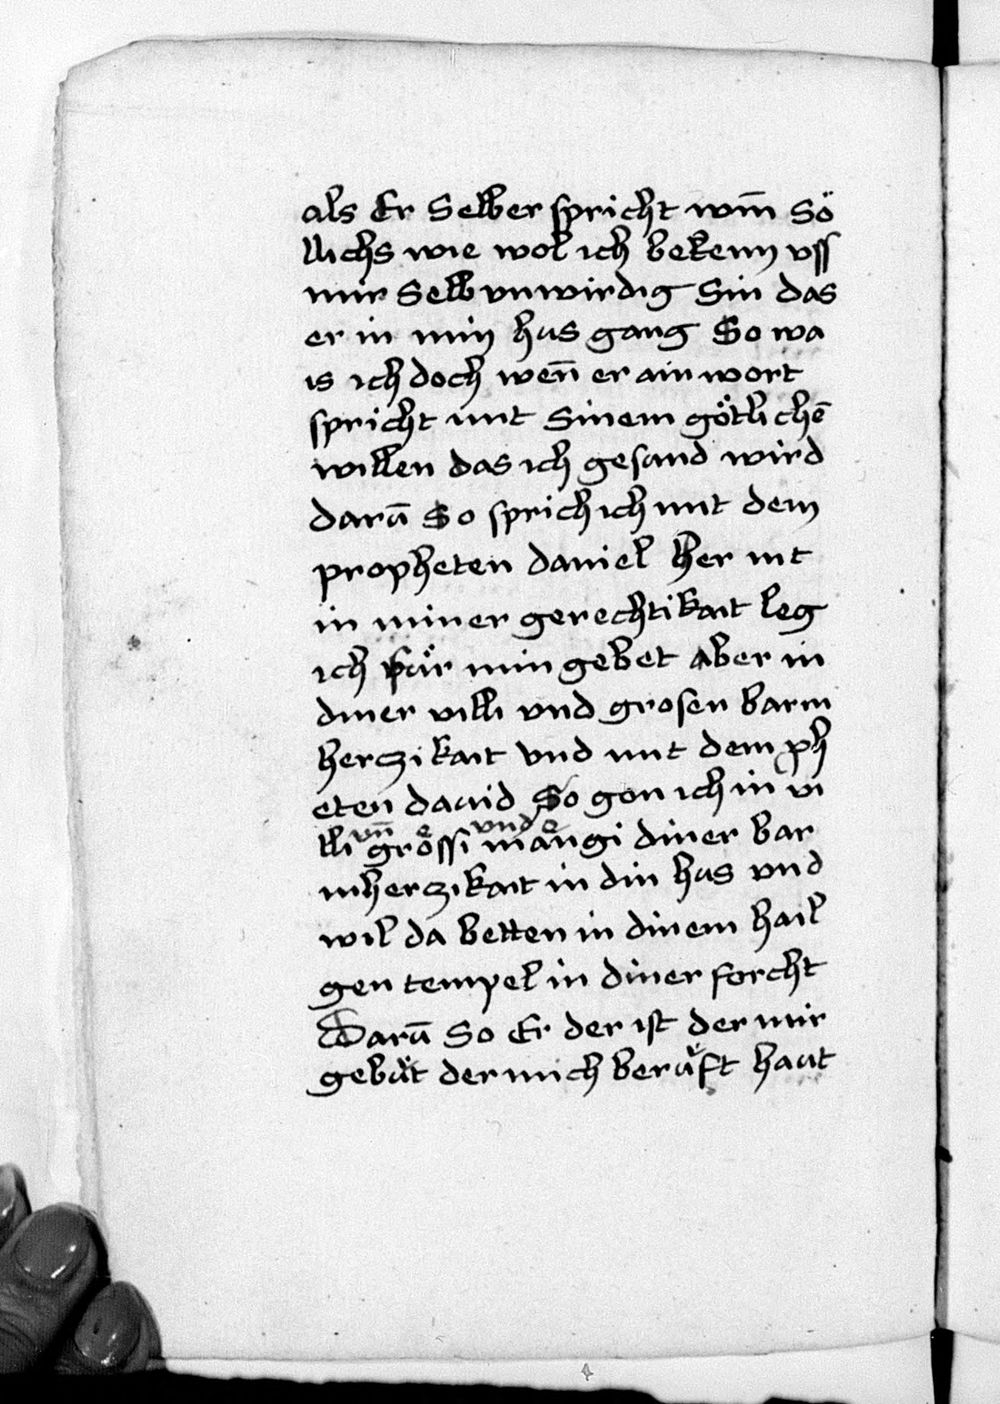 als Er Selber spricht wm̄ Sö
llichs wie wol ich bekenn vss
mir Selb vnwirdig Sin das
er in min hus gang So wa
is ich doch wen̄ er ain wort
spricht mit Sinem götlichē
willen das ich gesand wird
darū So sprich ich mit dem
propheten daniel her nit
in miner gerechtikait leg
ich für min gebet Aber in
diner villi vnd grosen barm
herczikait vnd mit dem ph
eten dauid So gon ich in vi
lli vn̄ grössi vnd mängi diner bar
mherczikait in din hus vnd
wil da betten in dinem hail
gen tempel in diner forcht
Darū So Er der ist der mir
gebüt der mich berüft haut